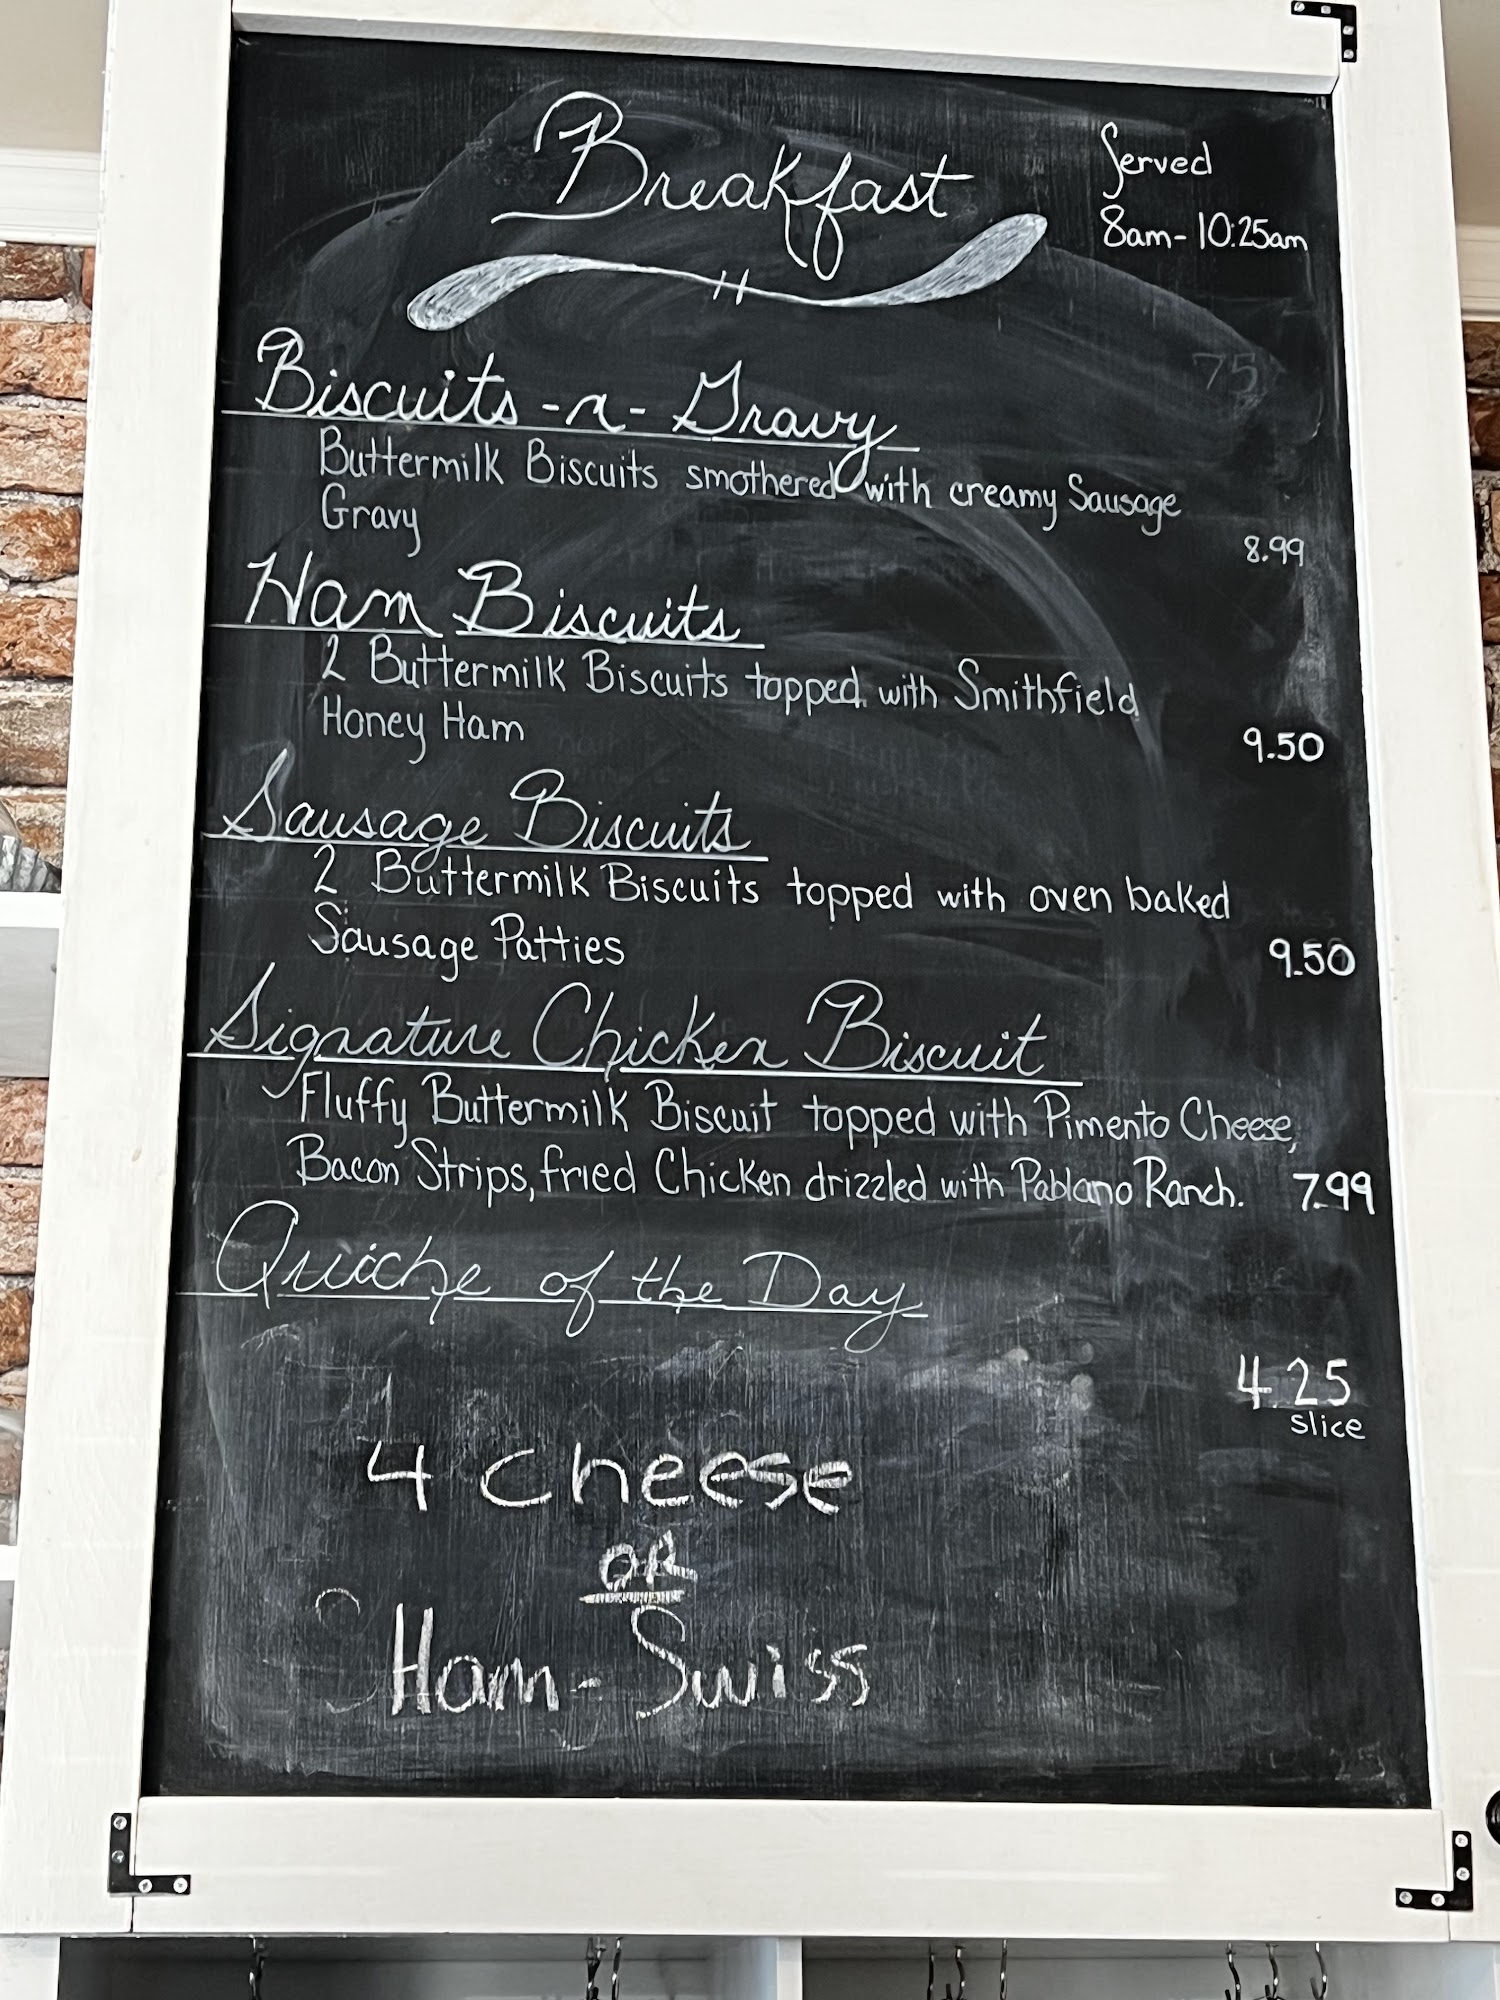 Breakfast
Served
8am-10:25am
Biscuits-n-Gravy
Buttermilk Biscuits smothered with creamy Sausage
Gravy
8.99
Ham Biscuits
2 Buttermilk Biscuits topped with Smithfield
Honey Ham
9.50
Sausage Biscuits
2 Buttermilk Biscuits topped with oven baked
Sausage Patties
9.50
Signature Chicken Biscuit
Fluffy Buttermilk Biscuit topped with Pimento Cheese,
Bacon Strips, fried Chicken drizzled with Pablano Ranch. 7.99
Quiche of the Day
4.25
slice
4 cheese
OR
Ham-Swiss